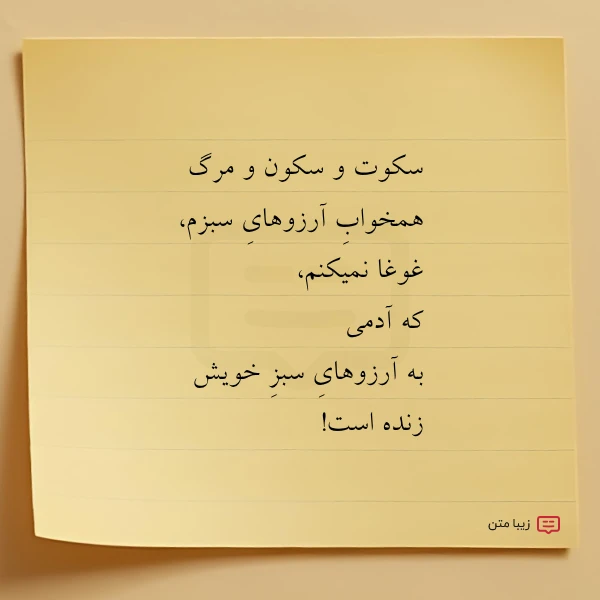 سکوت و سکون و مرگ
همخوابِ آرزوهایِ سبزم،
غوغا نمیکنم،
که آدمی
به آرزوهایِ سبزِ خویش
زنده است!
زیبا متن